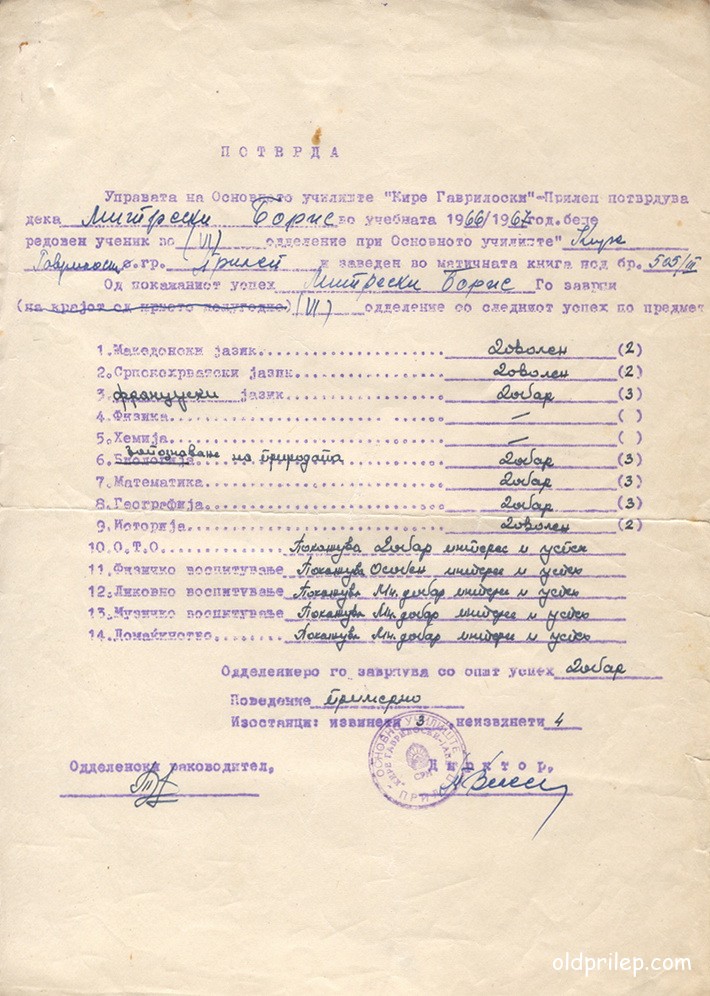 ПОТВРДА
Управата на Основното училиште "Кире Гаврилоски"-Прилеп потврдува
дека Митрески Борис во учебната 1966/1967год.беше
редовен ученик во (VI) одделение при Основното училиште" Кире
Гаврилоски с.гр. Прилеп и заведен во матичната книга под бр. 505/III
Од покажаниот успех Митрески Борис Го заврши
(на крајот од првото полугодие)(VI) одделение со следниот успех по предмет
1.Македонски јазик доволен (2)
2.Српскохрватски јазик доволен (2)
3.француски јазик добар (3)
4.Физика — ( )
5.Хемија — ( )
6.Биологија запознавање на природата добар (3)
7.Математика добар (3)
8.Географија добар (3)
9.Историја доволен (2)
10.О.Т.О. Покажува добар интерес и успех
11.Физичко воспитување Покажува Особен интерес и успех
12.Ликовно воспитување Покажува Мн. добар интерес и успех
13.Музичко воспитување Покажува Мн. добар интерес и успех
14.Домаќинство Покажува Мн. добар интерес и успех
Одделението го завршува со општ успех добар
Поведение примерно
Изостанци: извинети 3 неизвинети 4
Одделенски раководител, Директор,
ОСНОВНО УЧИЛИШТЕ
КИРЕ ГАВРИЛОСКИ
СРМ
ПРИЛЕП
oldprilep.com